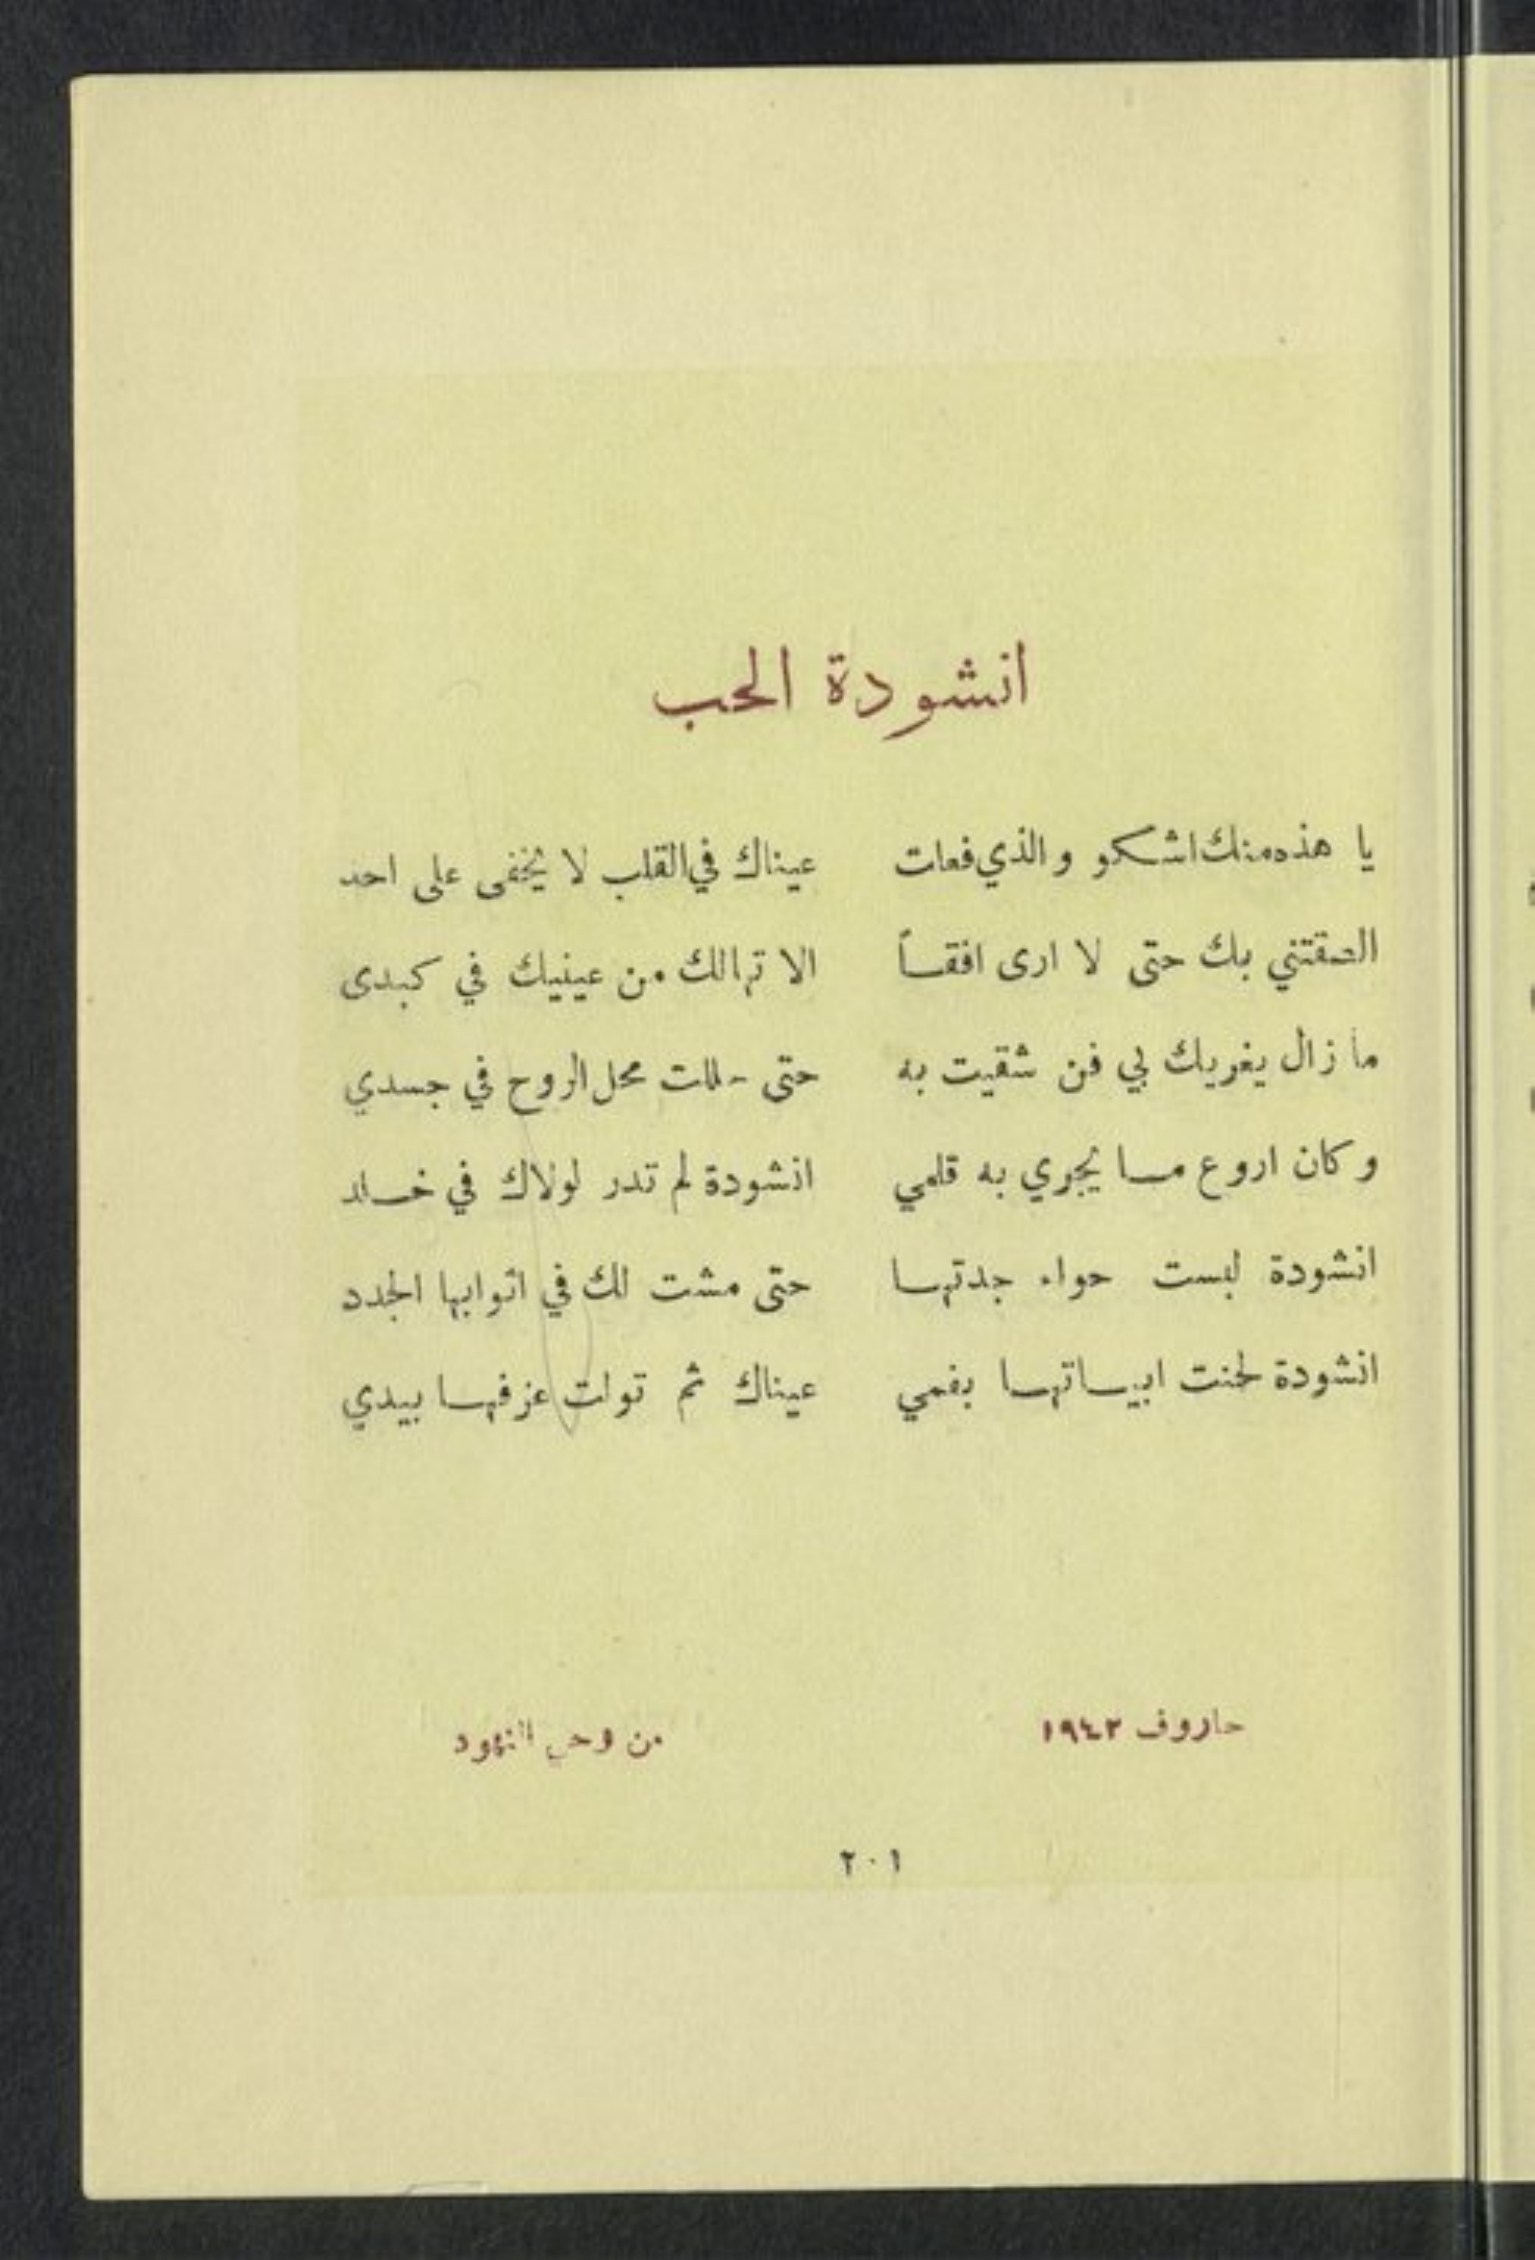 انشودة الحب
يا هذه منك اشكو والذي فعلت عيناك في القلب لا يخفى على احد
الصقتني بك حتى لا ارى افقاً الا تهالك من عينيك في كبدى
ما زال يغريك بي فن شقيت به حتى حللت محل الروح في جسدي
وكان اروع ما يجري به قلمي انشودة لم تدر لولاك في خلد
انشودة لبست حواء جدتها حتى مشت لك في اثوابها الجدد
انشودة لحنت ابياتها بفمي عيناك ثم تولت عزفها بيدي
حاروف ١٩٤٢ من وحي النهود
٢٠١